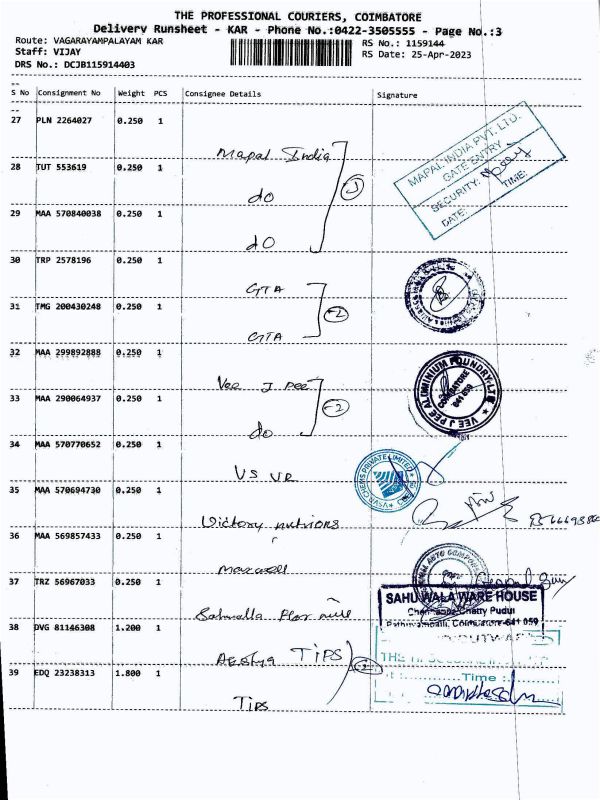 THE PROFESSIONAL COURIERS, COIMBATORE
Delivery Runsheet - KAR - Phone No.:0422-3505555 - Page No.:3
Route: VAGARAYAMPALAYAM KAR
RS No.: 1159144
Staff: VIJAY
RS Date: 25-Apr-2023
DRS No.: DCJB115914403
S No Consignment No Weight PCS Consignee Details Signature
27 PLN 2264027 0.250 1
Mapal India
28 TUT 553619 0.250 1
do
29 MAA 570840038 0.250 1
do
MAPAL INDIA PVT. LTD.
GATE ENTRY
SECURITY:
DATE: TIME:
30 TRP 2578196 0.250 1
GTA
31 TMG 200430248 0.250 1
GTA
32 MAA 299892888 0.250 1
Vee J Pee
33 MAA 290064937 0.250 1
do
VEE J PEE ALUMINIUM FOUNDRY-LTD
COIMBATORE
641 659
34 MAA 570770652 0.250 1
VS VR
PRIVATE LIMITED
35 MAA 570694730 0.250 1
Victory
36 MAA 569857433 0.250 1
Maxwell
37 TRZ 56967033 0.250 1
SAHU WALA WARE HOUSE
Chetty Pudur
Coimbatore-641 059
38 DVG 81146308 1.200 1
TIPS
39 EDQ 23238313 1.800 1
Tips
Time :